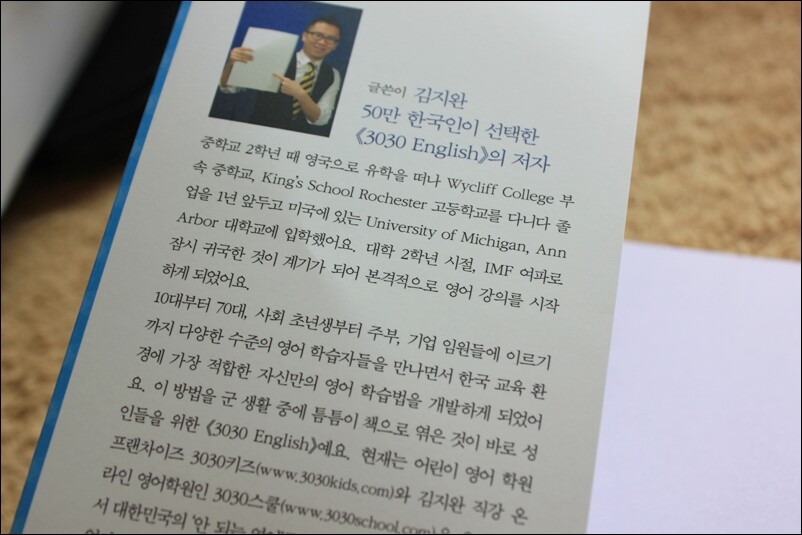 글쓴이 김지완
50만 한국인이 선택한
《3030 English》의 저자
중학교 2학년 때 영국으로 유학을 떠나 Wycliff College 부
속 중학교, King's School Rochester 고등학교를 다니다 졸
업을 1년 앞두고 미국에 있는 University of Michigan, Ann
Arbor 대학교에 입학했어요. 대학 2학년 시절, IMF 여파로
잠시 귀국한 것이 계기가 되어 본격적으로 영어 강의를 시작
하게 되었어요.
10대부터 70대, 사회 초년생부터 주부, 기업 임원들에 이르기
까지 다양한 수준의 영어 학습자들을 만나면서 한국 교육 환
경에 가장 적합한 자신만의 영어 학습법을 개발하게 되었어
요. 이 방법을 군 생활 중에 틈틈이 책으로 엮은 것이 바로 성
인들을 위한 《3030 English》예요. 현재는 어린이 영어 학원
프랜차이즈 3030키즈(www.3030kids.com)와 김지완 직강 온
라인 영어학원인 3030스쿨(www.3030school.com)을
서 대한민국의 '안 되는